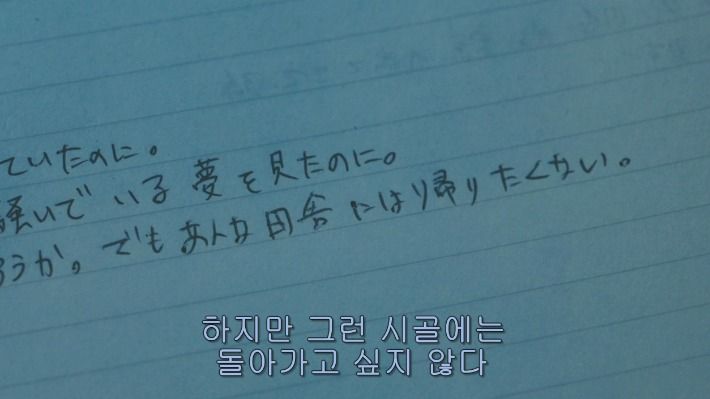 ていたのに。
騒いでいる夢を見たのに。
ろうか。でもあんな田舎にはり帰りたくない。
하지만 그런 시골에는
돌아가고 싶지 않다